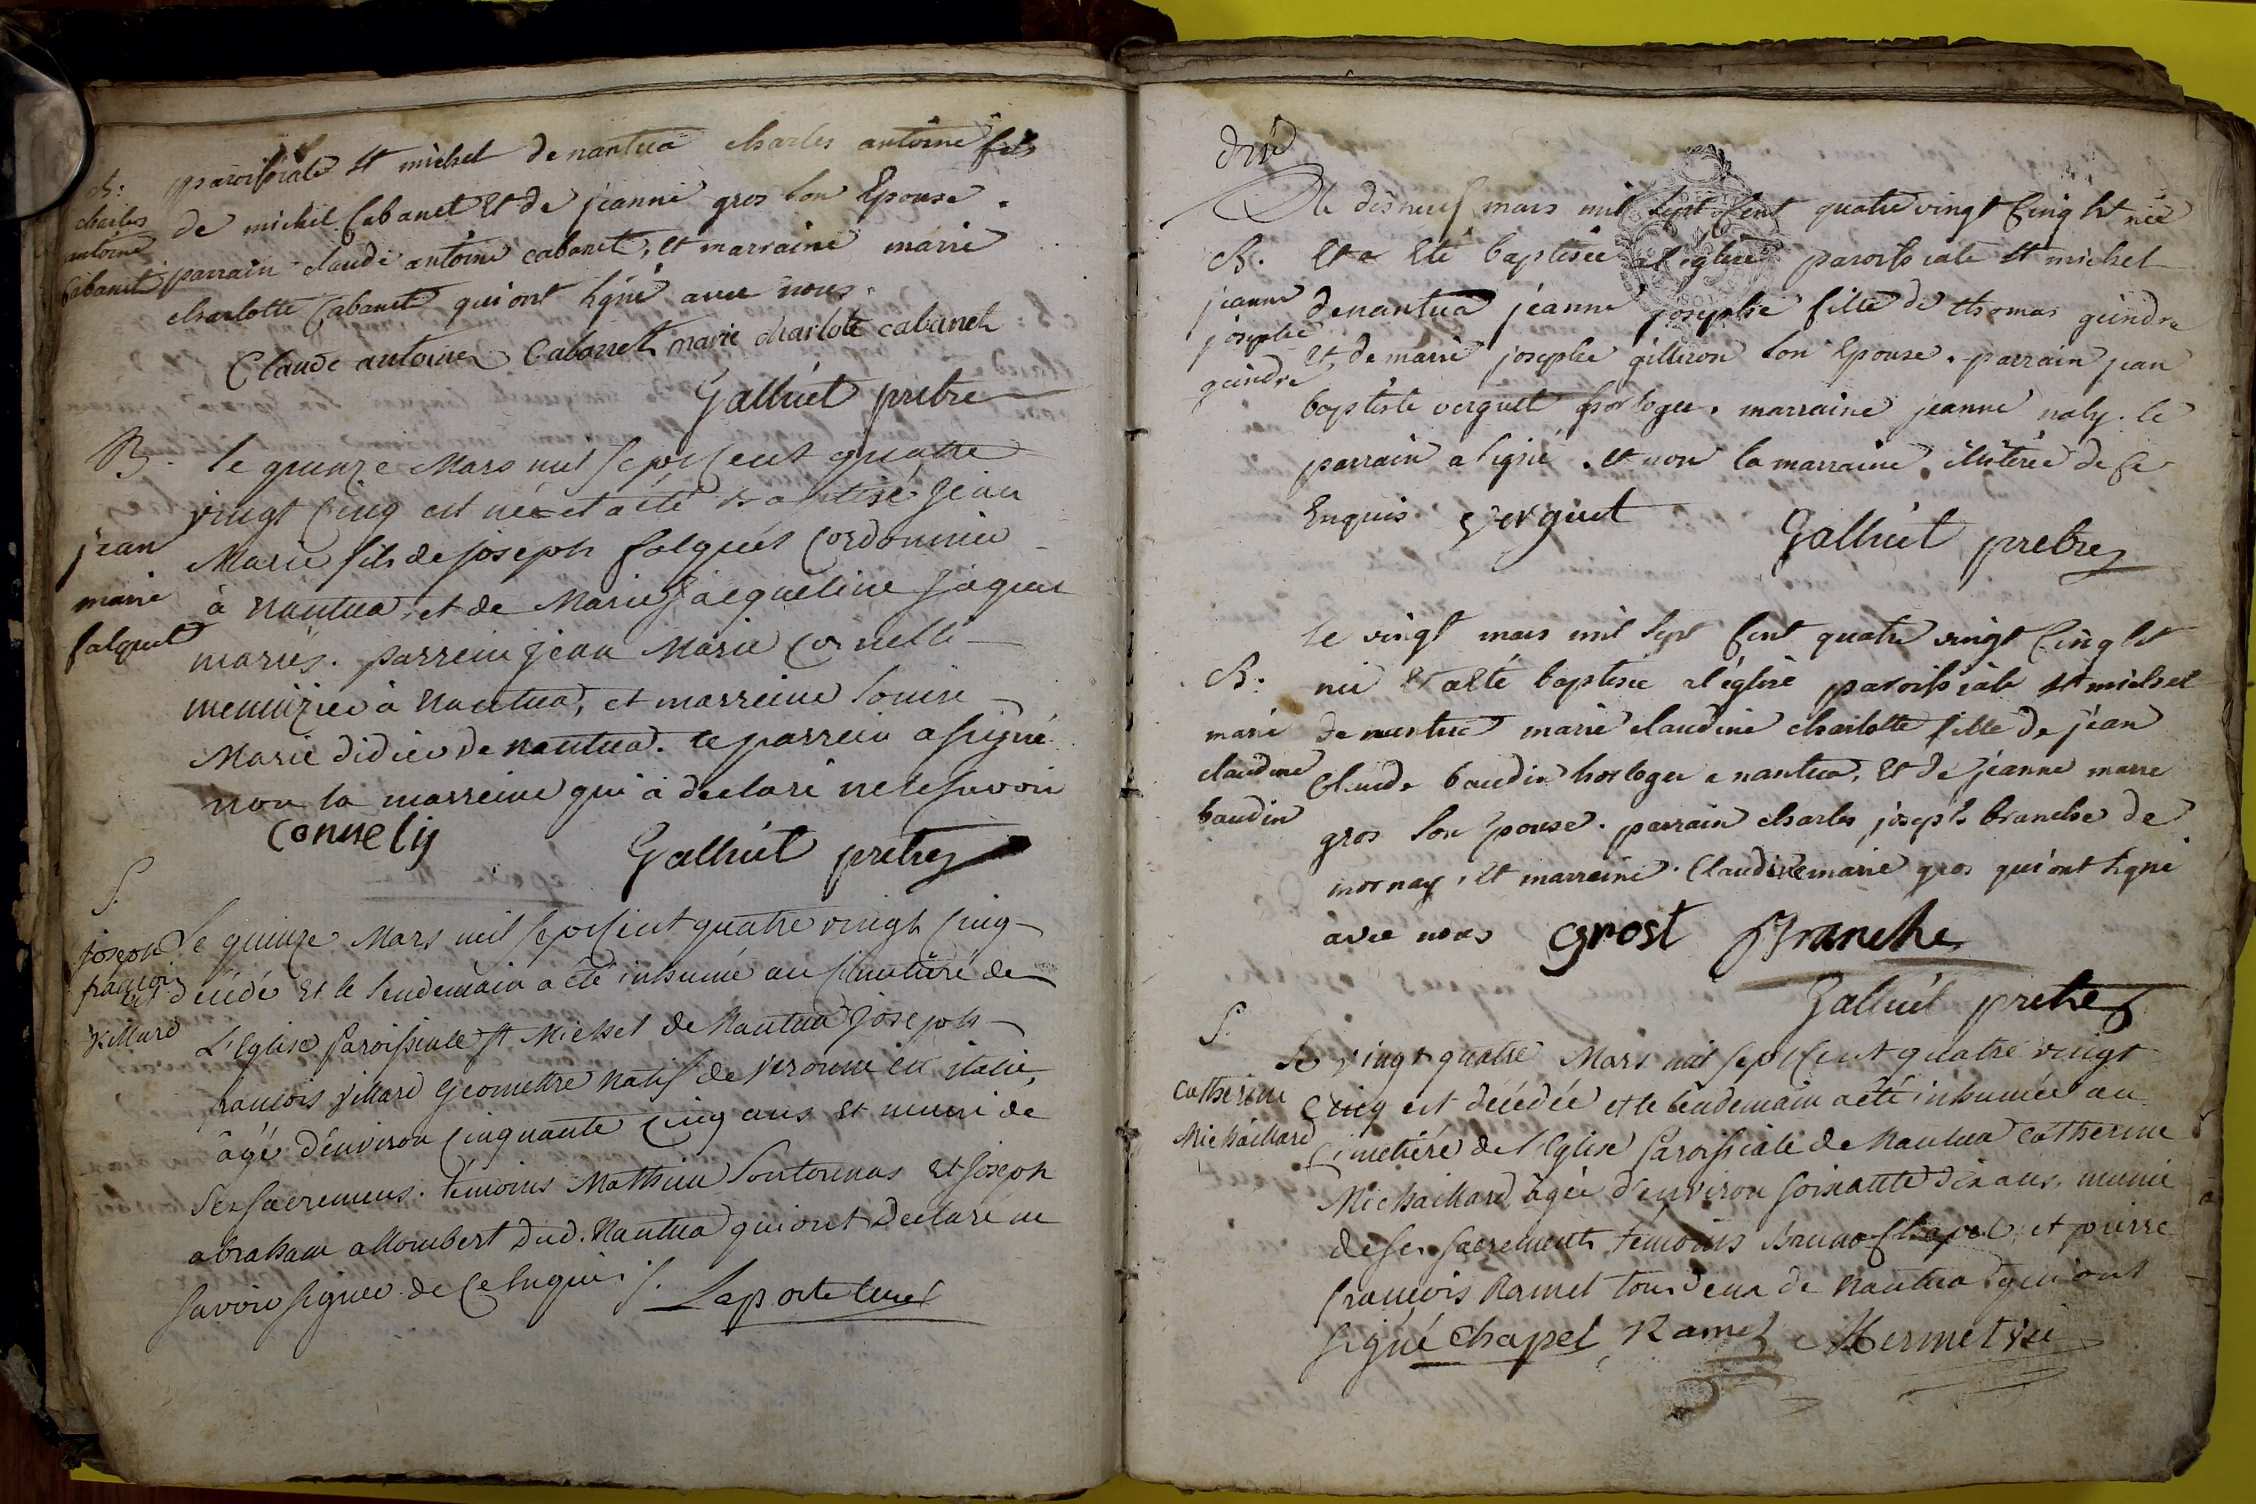 B:
charles
antoine
Cabanet
paroissiale st michel de nantua charles antoine fils
de michel Cabanet Et de jeanne gros son Epouse.
parrain claude antoine cabanet, et marraine marie
charlotte Cabanet qui ont signé avec nous.
Claude antoine Cabanet marie charlote cabanet
Galliet pretre
B.
jean
marie
falquet
le quinze Mars mil sept Cent quatre
vingt Cinq est né et a été baptisé Jean
Marie fils de joseph falquet Cordonnier
à Nantua, et de Marie Jacqueline
mariés. parrein Jean Marie Cornelli
menuizier à Nantua, et marreine Louise
Marie didier de nantua. le parrein a signé
non la marreine qui a declaré ne le savoir
Connelly Galliet pretre
S.
joseph
françois
Villard
Le quinze Mars mil sept Cent quatre vingt Cinq
décédé Et le lendemain a été inhumé au Cimetiere de
L'Eglise Paroissiale st Michel de Nantua Joseph
francois Villard Geomettre natif de Veronne en italie,
âgé d'environ Cinquante Cinq ans et muni de
Ses Sacremens. témoins Mathieu Sontonnas Et Joseph
abraham allombert Dud. Nantua qui ont Declaré ne
Savoir Signer de Ce Enquis.
B.
jeanne
josephe
geindre
le dix neuf mars mil sept Cent quatre vingt Cinq Est née
Et a Eté baptisée a l'église paroissiale st michel
de nantua jeanne josephe fille de thomas geindre
Et de marie josephe gilliron son Epouse. parrain jean
baptiste verguet horloger. marraine jeanne naly. le
parrain a signé. et non la marraine. illiterée de ce
Enquis. verguet Galliet pretre
B.
marie
claudine
baudin
le vingt mars mil sept Cent quatre vingt Cinq Est
née Et a été baptisée a l'église paroissiale st michel
de nantua marie claudine charlotte fille de jean
Claude baudin horloger a nantua, Et de jeanne marie
gros son Epouse. parrain charles joseph branche de
mornay, et marraine Claudine marie gros qui ont signé
avec nous Grost Branche
Galliet pretre
S.
Catherine
Michaillard
Le vingt quatre Mars mil sept Cent quatre vingt
Cinq est décédée et le lendemain a été inhumée au
Cimetiére de l'Eglise Paroissiale de Nantua Catherine
Michaillard âgée d'environ soixante dix ans, munie
de ses sacrements témoins Bruno Chapel et pierre
françois Ramel tous deux de Nantua qui ont
signé Chapel Ramel Mermet vic